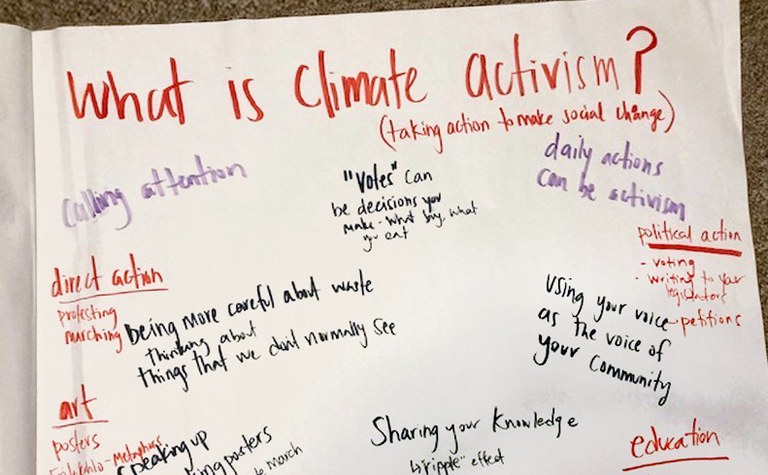 What is climate activism?
(taking action to make social change)
calling attention
"Votes" can
be decisions you
make - what buy, what
you eat
daily actions
can be activism
political action
- voting
- writing to your
legislators
- petitions
direct action
protesting
marching
being more careful about waste
thinking about
things that we don't normally see
using your voice
as the voice of
your community
art
posters
speaking up
posters
march
Sharing your knowledge
"ripple" effect
education